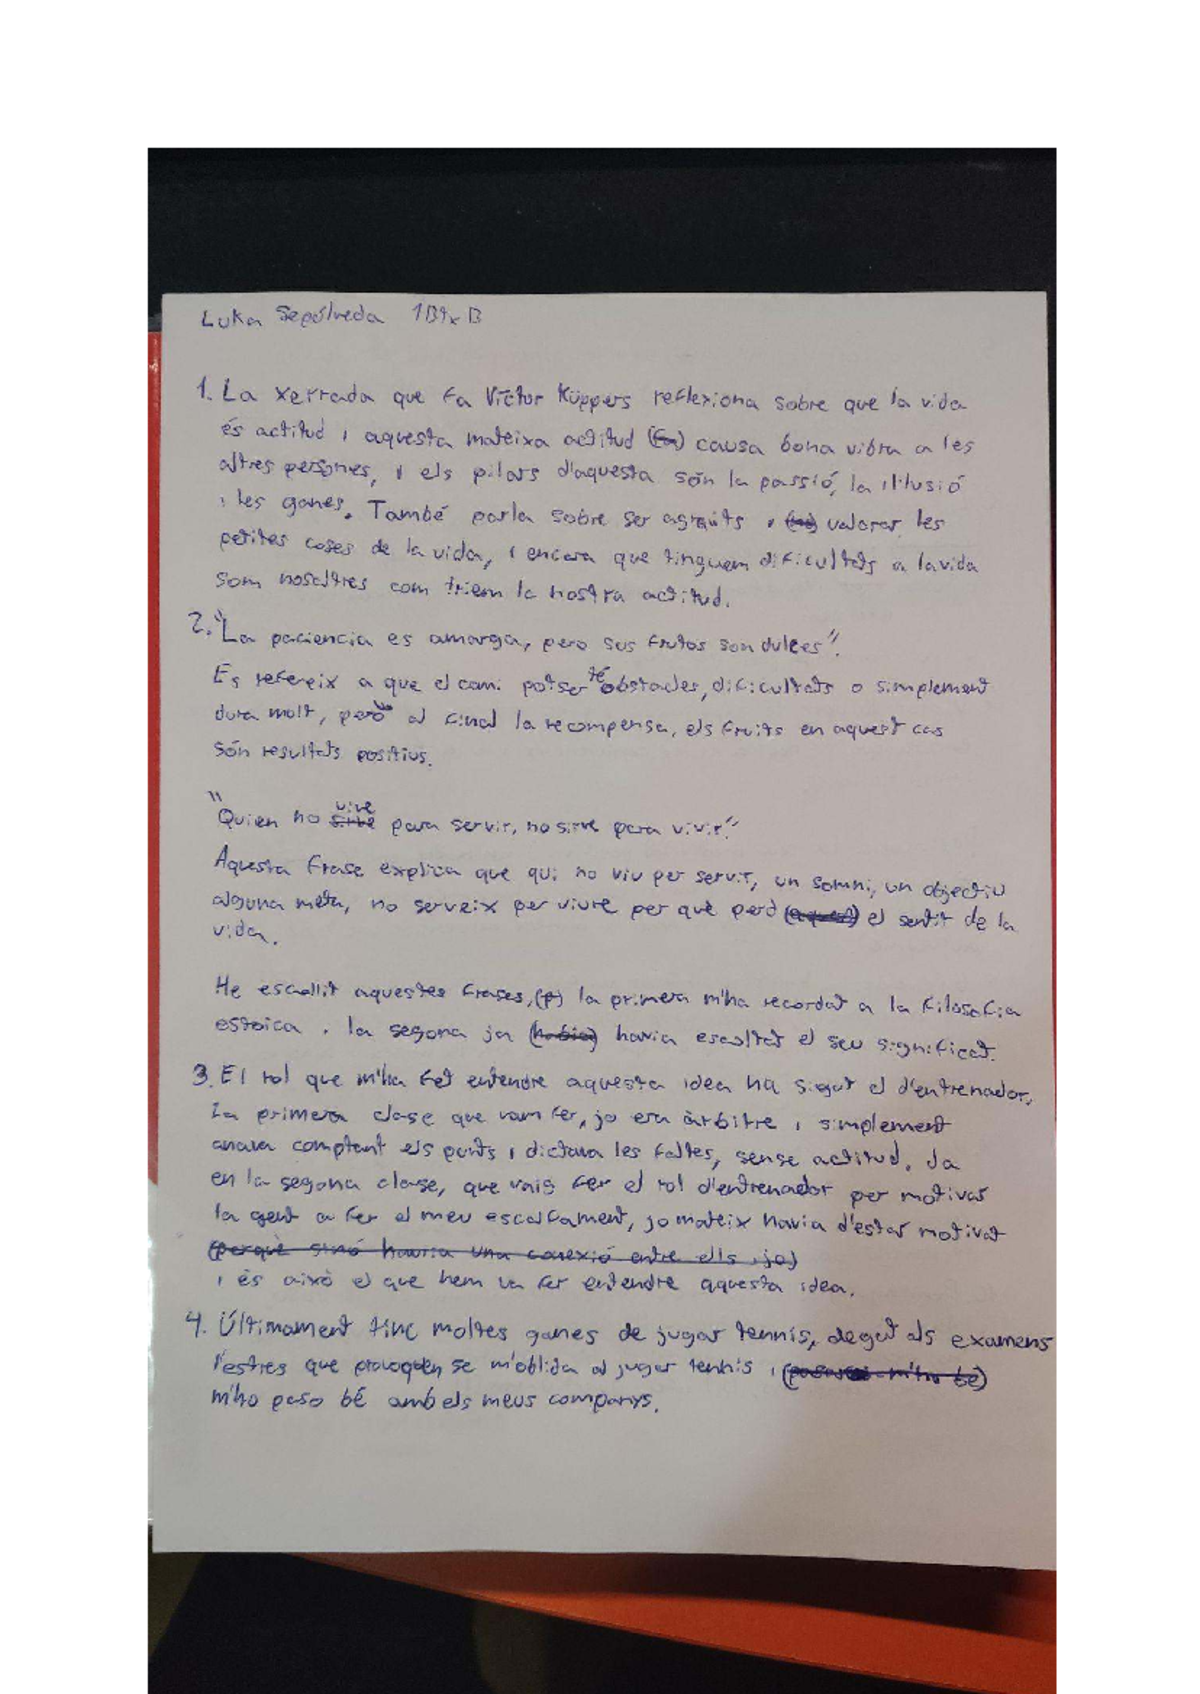 Luka Sepúlveda 1BTx B
1. La xerrada que fa Víctor Küppers reflexiona sobre que la vida
és actitud i aquesta mateixa actitud (fa) causa bona vibra a les
altres persones, i els pilars d'aquesta són la passió, la il·lusió
i les ganes. També parla sobre ser agraïts i valorar les
petites coses de la vida, i encara que tinguem dificultats a la vida
som nosaltres com triem la nostra actitud.
2. "La paciencia es amarga, pero sus frutos son dulces".
Es refereix a que el camí potser té obstacles, dificultats o simplement
dura molt, però al final la recompensa, els fruits en aquest cas
són resultats positius.
"Quien no vive para servir, no sirve para vivir."
Aquesta frase explica que qui no viu per servir, un somni, un objectiu
alguna meta, no serveix per viure per què perd (aquest) el sentit de la
vida.
He escollit aquestes frases, (p) la primera m'ha recordat a la filosofia
estoica i la segona ja (habia) havia escoltat el seu significat.
3. El rol que m'ha fet entendre aquesta idea ha sigut el d'entrenador,
La primera clase que vam fer, jo era àrbitre i simplement
anava comptant els punts i dictava les faltes, sense actitud. Ja
en la segona clase, que vaig fer el rol d'entrenador per motivar
la gent a fer el meu escalfament, jo mateix havia d'estar motivat
(perquè sinó hauria una conexió entre ells i jo)
i és això el que hem va fer entendre aquesta idea.
4. Últimament tinc moltes ganes de jugar tennis, degut als examens
l'estres que provoquen se m'oblida al jugar tennis i
m'ho paso bé amb els meus companys.